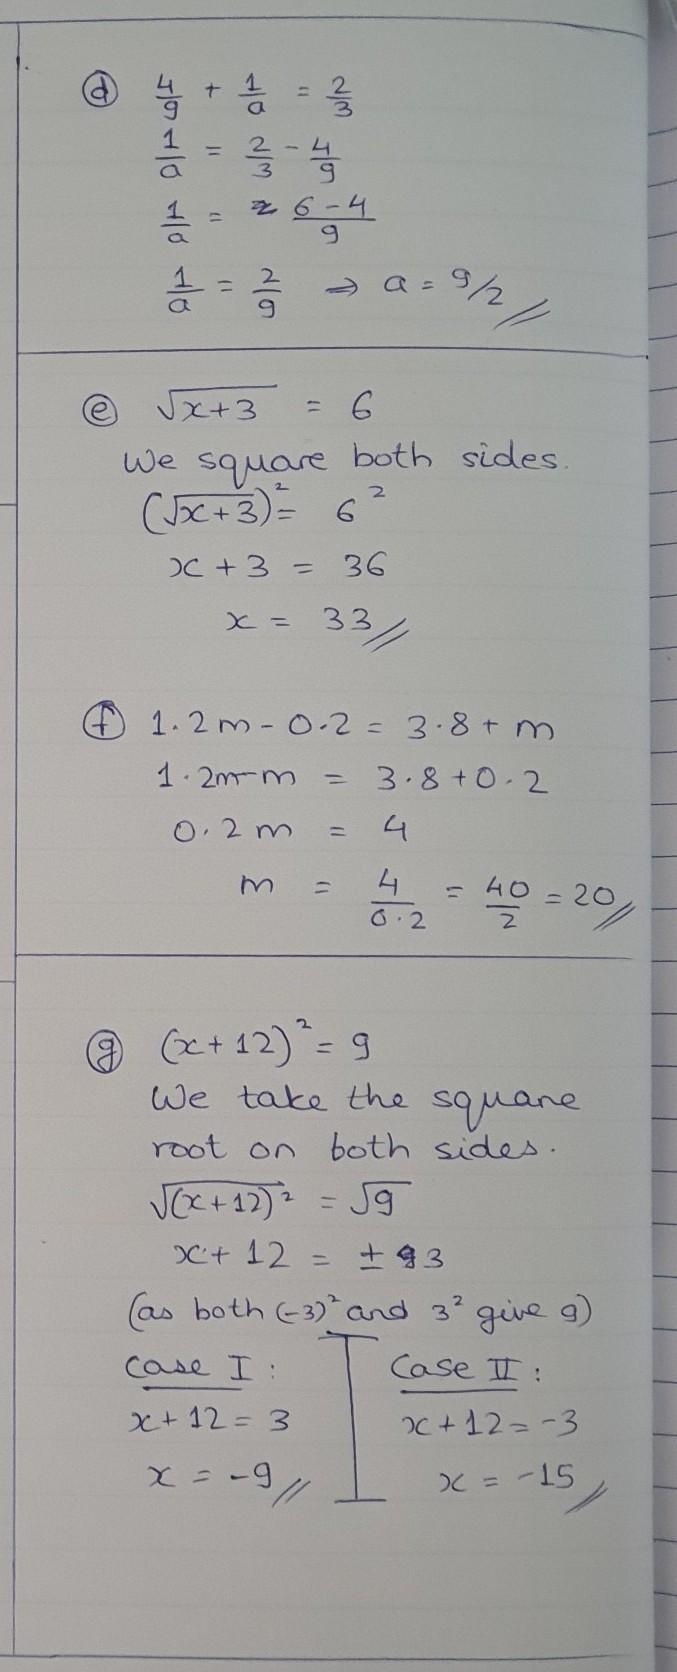 (d) 4/9 + 1/a = 2/3
1/a = 2/3 - 4/9
1/a = (6-4)/9
1/a = 2/9 ⇒ a = 9/2 //
(e) √(x+3) = 6
We square both sides.
(√(x+3))² = 6²
x + 3 = 36
x = 33 //
(f) 1.2m - 0.2 = 3.8 + m
1.2m - m = 3.8 + 0.2
0.2m = 4
m = 4/0.2 = 40/2 = 20 //
(g) (x+12)² = 9
We take the square
root on both sides.
√(x+12)² = √9
x + 12 = ± 3
(as both (-3)² and 3² give 9)
Case I :
x + 12 = 3
x = -9 //
Case II :
x + 12 = -3
x = -15 //